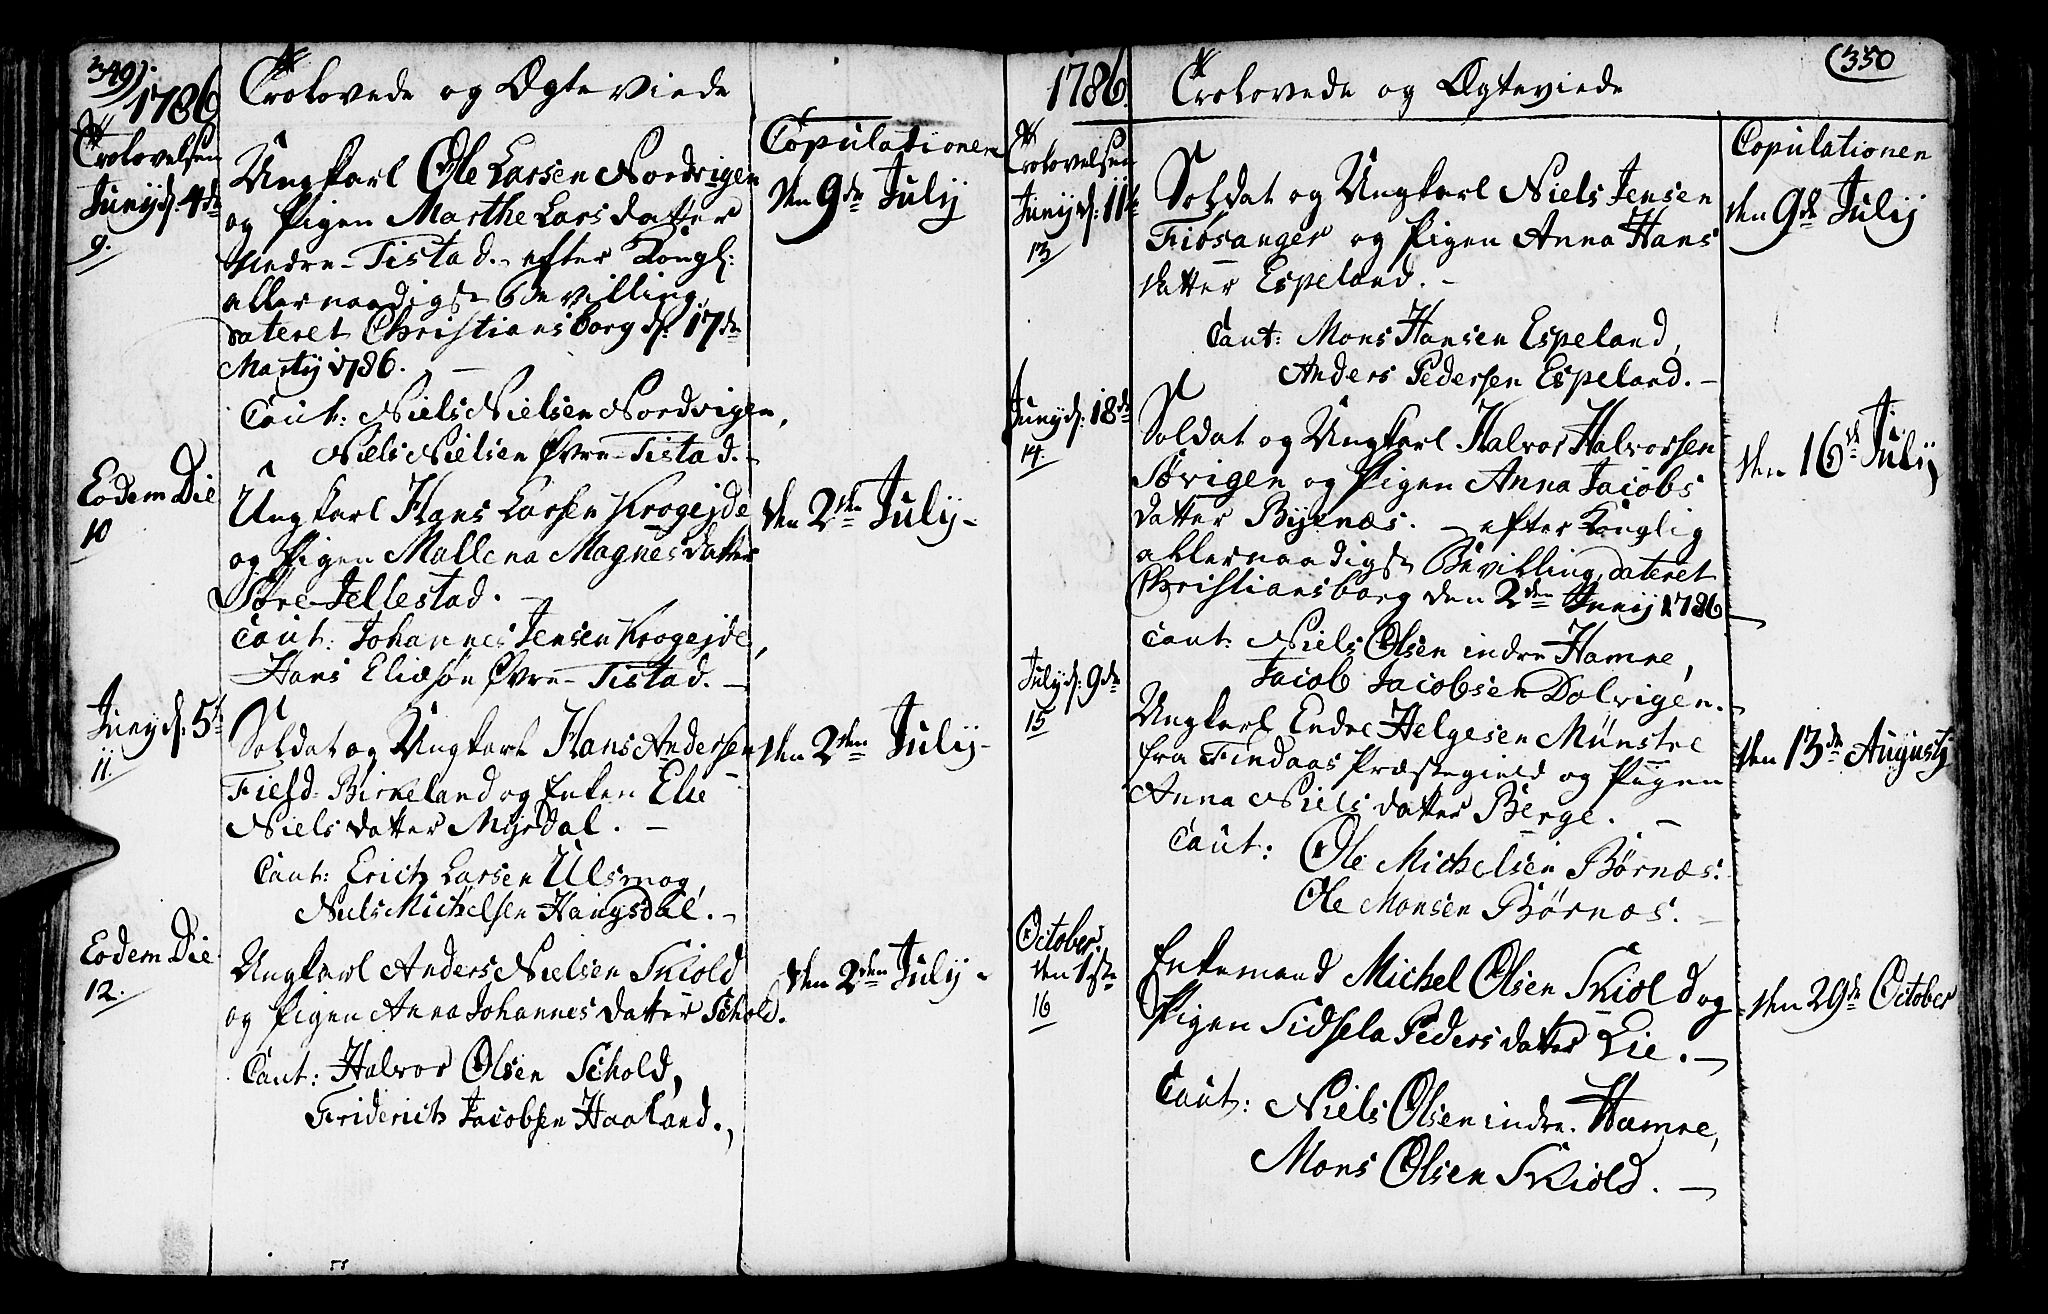 349).
1786
Trolovede og Ægteviede
Trolovelsen
Copulationen
Junij d: 4de
9.
Ungkarl Ole Larsen Nordvigen
og Pigen Marthe Larsdatter
Nedre-Tistad. efter Kongl:
allernaadigst Bevilling,
dateret Christiansborg d: 17de
Martij 1786.
den 9de Julij
Caut: Niels Nielsen Nordvigen,
Niels Nielsen Øvre-Tistad.
Eodem Die
10
Ungkarl Hans Larsen Krogejde
og Pigen Mallena Magnesdatter
Søre-Jellestad.
den 2den Julij
Caut: Johannes Jensen Krogejde,
Hans Eliæsøn Øvre-Tistad.
Junij d: 5te
11.
Soldat og Ungkarl Hans Andersen
Birkeland og Enken Elie
Nielsdatter Myrdal.
den 2den Julij
Caut: Erich Larsen Ulsmog,
Niels Michelsen Haugsdal.
Eodem Die
12.
Ungkarl Anders Nielsen Skiold
og Pigen Anna Johannesdatter Schold.
den 2den Julij
Caut: Halvor Olsen Schold,
Friderich Jacobsen Haaland.
(350
1786.
Trolovede og Ægteviede
Trolovelsen
Copulationen
Junij d: 11te
13
Soldat og Ungkarl Niels Jensen
Fiøsanger og Pigen Anna Hans
datter Espeland.
den 9de Julij
Caut: Mons Hansen Espeland,
Anders Pedersen Espeland.
Junij d: 18de
14.
Soldat og Ungkarl Halvor Halvorsen
Sørvigen og Pigen Anna Jacobs
datter Byenæs. efter Konglig
allernaadigst Bevilling, dateret
Christiansborg den 2den Junij 1786
den 16de Julij
Caut: Niels Olsen indre Hamre,
Jacob Jacobsen Dolvigen.
Julij d: 9de
15
Ungkarl Endre Helgesen Münstre
fra Findaas Præstegield og Pigen
Anna Nielsdatter Berge.
den 13de Augustj
Caut: Ole Michelsen Børnæs.
Ole Monsen Børnæs.
October.
den 1ste
16
Enkemand Michel Olsen Skiold og
Pigen Sidsela Pedersdatter Lie.
den 29de October
Caut: Niels Olsen indre Hamre,
Mons Olsen Skiold.